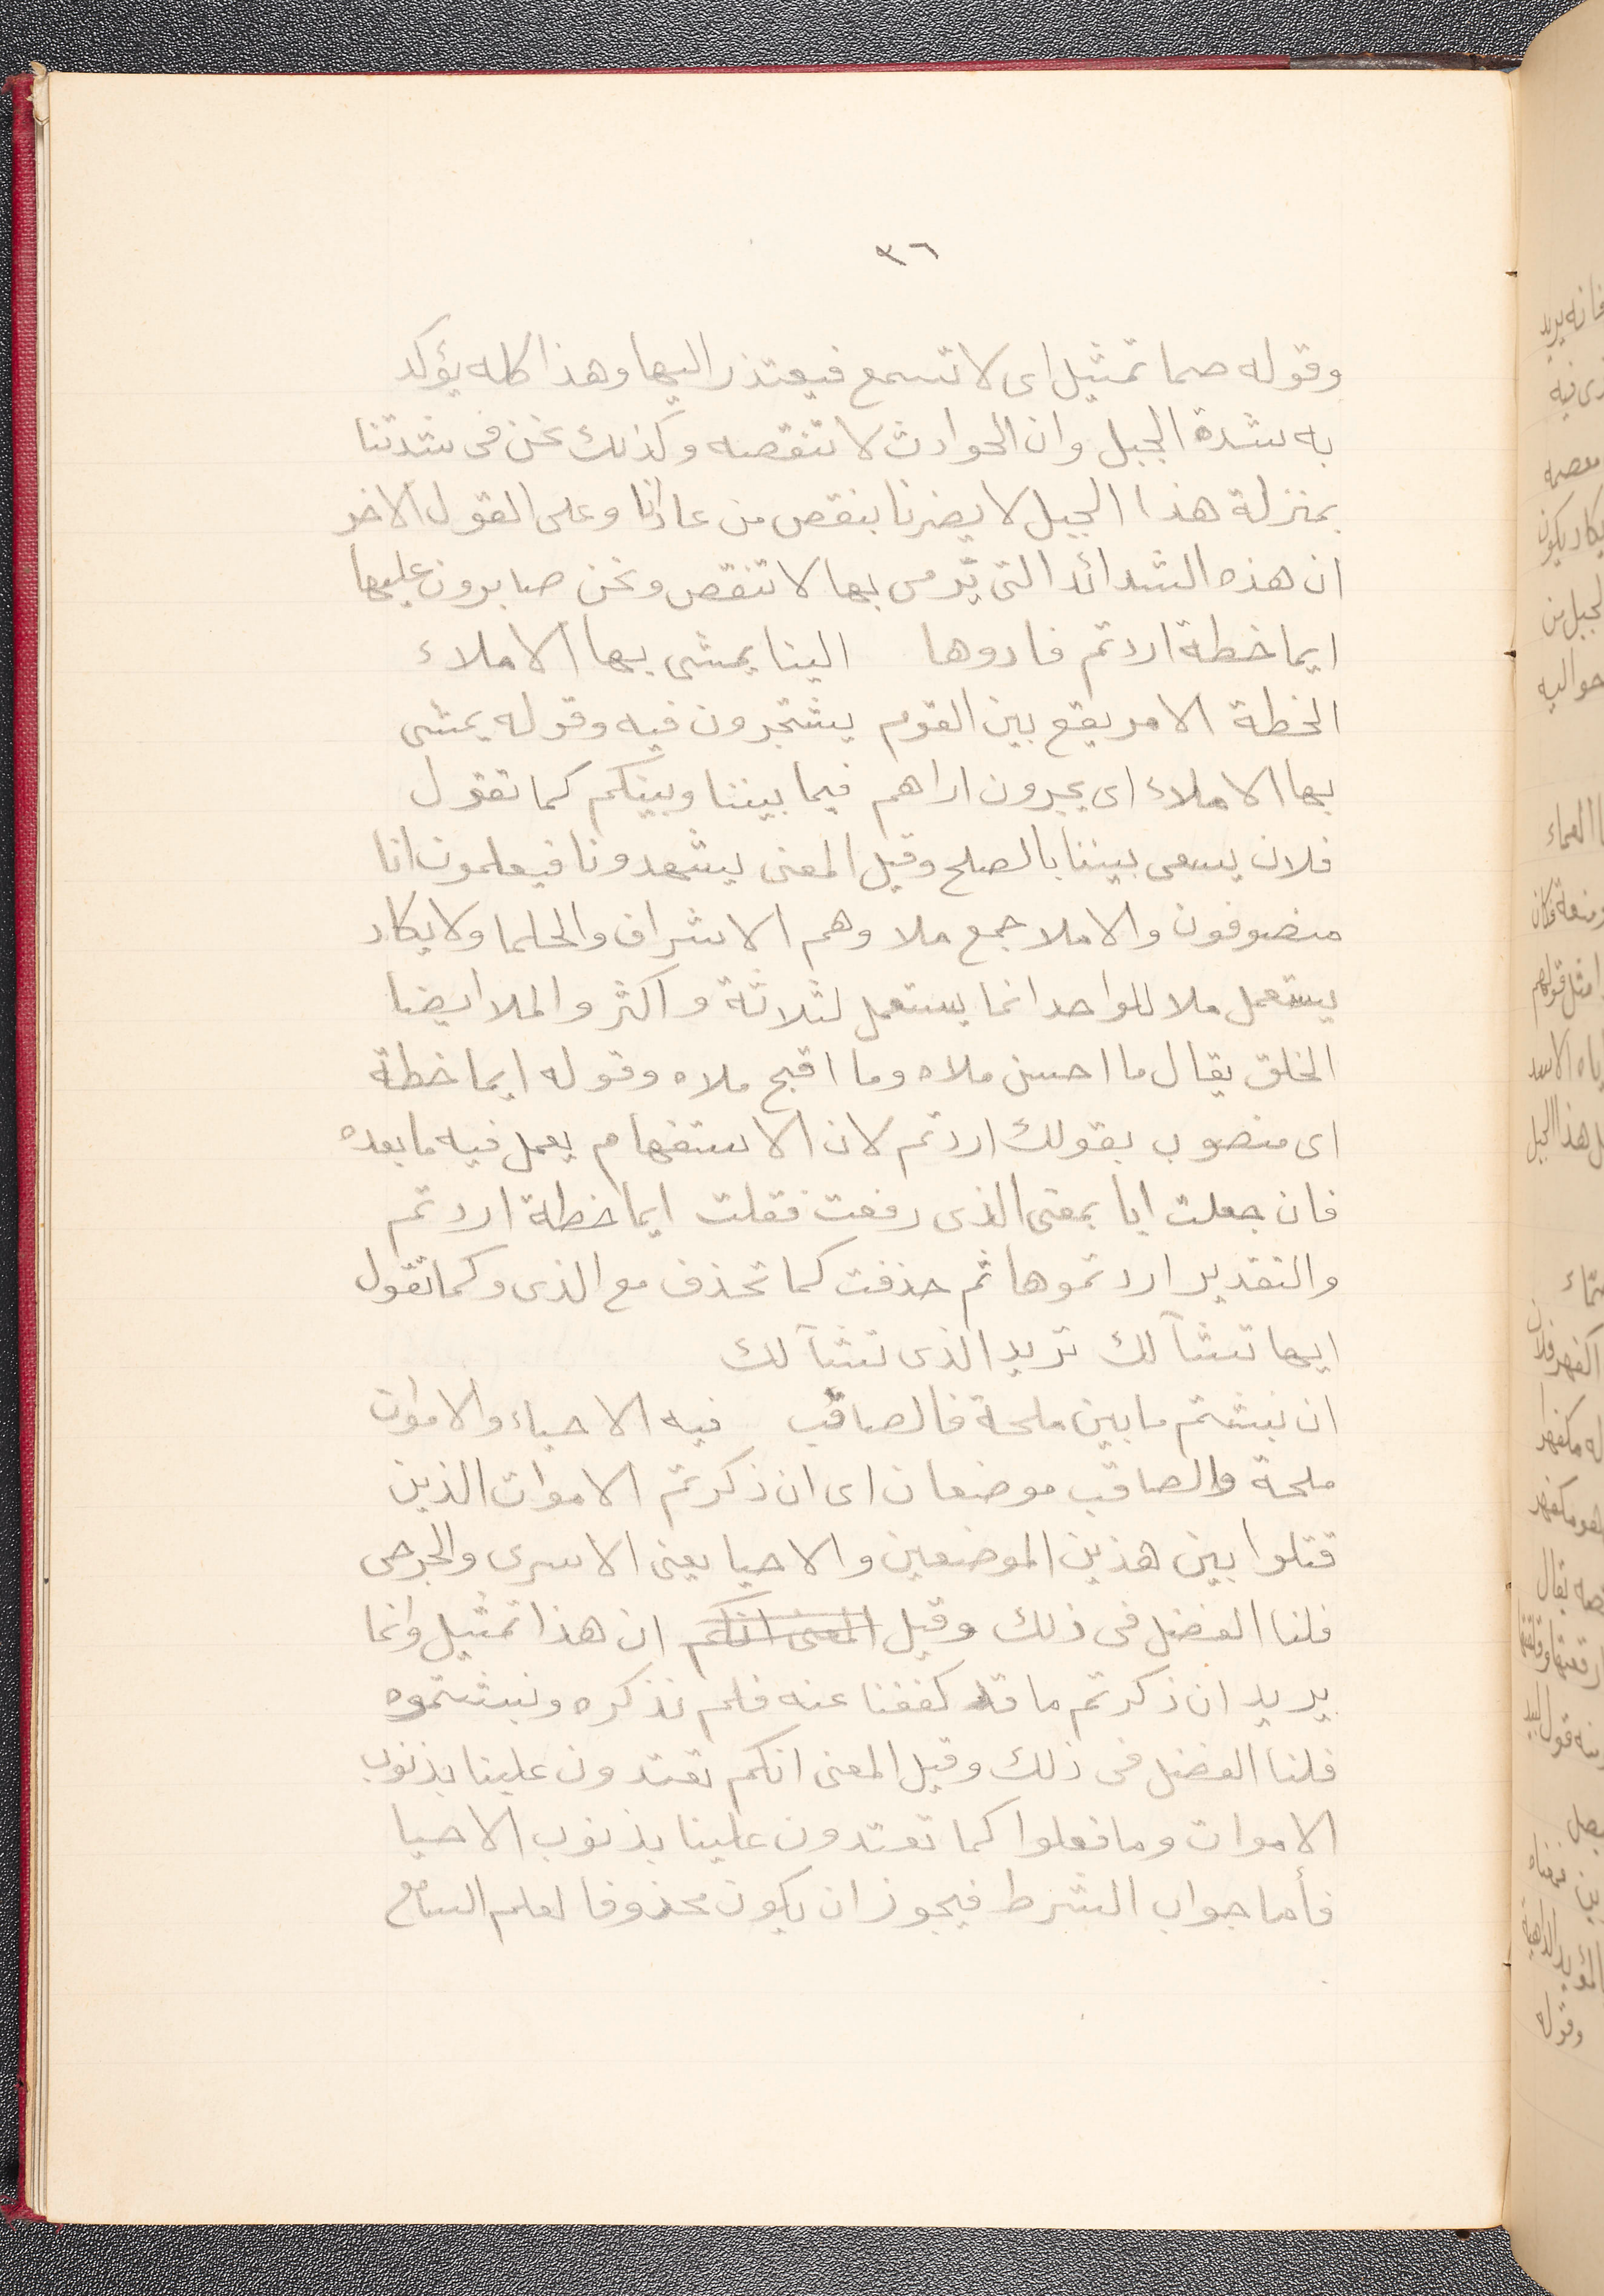 ٣٦
وقوله صما تمثيل اى لا تسمع فيعتذر اليها وهذا كله يؤكد
به شدة الجبل وان الحوادث لا تنقصه وكذلك نحن فى شدتنا
بمنزلة هذا الجبل لا يضرنا بنقص من عادانا وعلى القول الاخر
ان هذه الشدائد التى ترمى بها لا تنقص ونحن صابرون عليها
ايما خطة اردتم فادوها الينا يمشى بها الاملاء
الخطة الامر يقع بين القوم يشتجرون فيه وقوله يمشى
بها الاملاء اى يجرون اراهم فيما بيننا وبينكم كما تقول
فلان يسعى بيننا بالصلح وقيل المعنى يشهدونا فيعلمون انا
منصوفون والاملا جمع ملا وهم الاشراف والحلما ولا يكاد
يستعمل ملا للواحد انما يستعمل لثلاثة واكثر والملا ايضا
الخلق يقال ما احسن ملاه وما اقبح ملاه وقوله ايما خطة
اى منصوب بقولك اردتم لان الاستفهام يعمل فيه ما بعده
فان جعلت ايا بمعنى الذى رفعت فقلت ايما خطة اردتم
والتقدير اردتموها ثم حذفت كما تحذف مع الذى وكما تقول
ايها تشآ لك تريد الذى تشآ لك
ان نبشتم ما بين ملحة فالصاقب فيه الاحياء والاموات
ملحة والصاقب موضعان اى ان ذكرتم الاموات الذين
قتلوا بين هذين الموضعين والاحيا يعنى الاسرى والجرحى
فلنا الفضل فى ذلك وقيل المعنى انكم ان هذا تمثيل وانما
يريد ان ذكرتم ما قد كففنا عنه فلم نذكره ونبشتموه
فلنا الفضل فى ذلك وقيل المعنى انكم تعتدون علينا بذنوب
الاموات وما فعلوا كما تعتدون علينا بذنوب الاحيا
فأما جواب الشرط فيجوز ان يكون محذوفا لعلم السامع